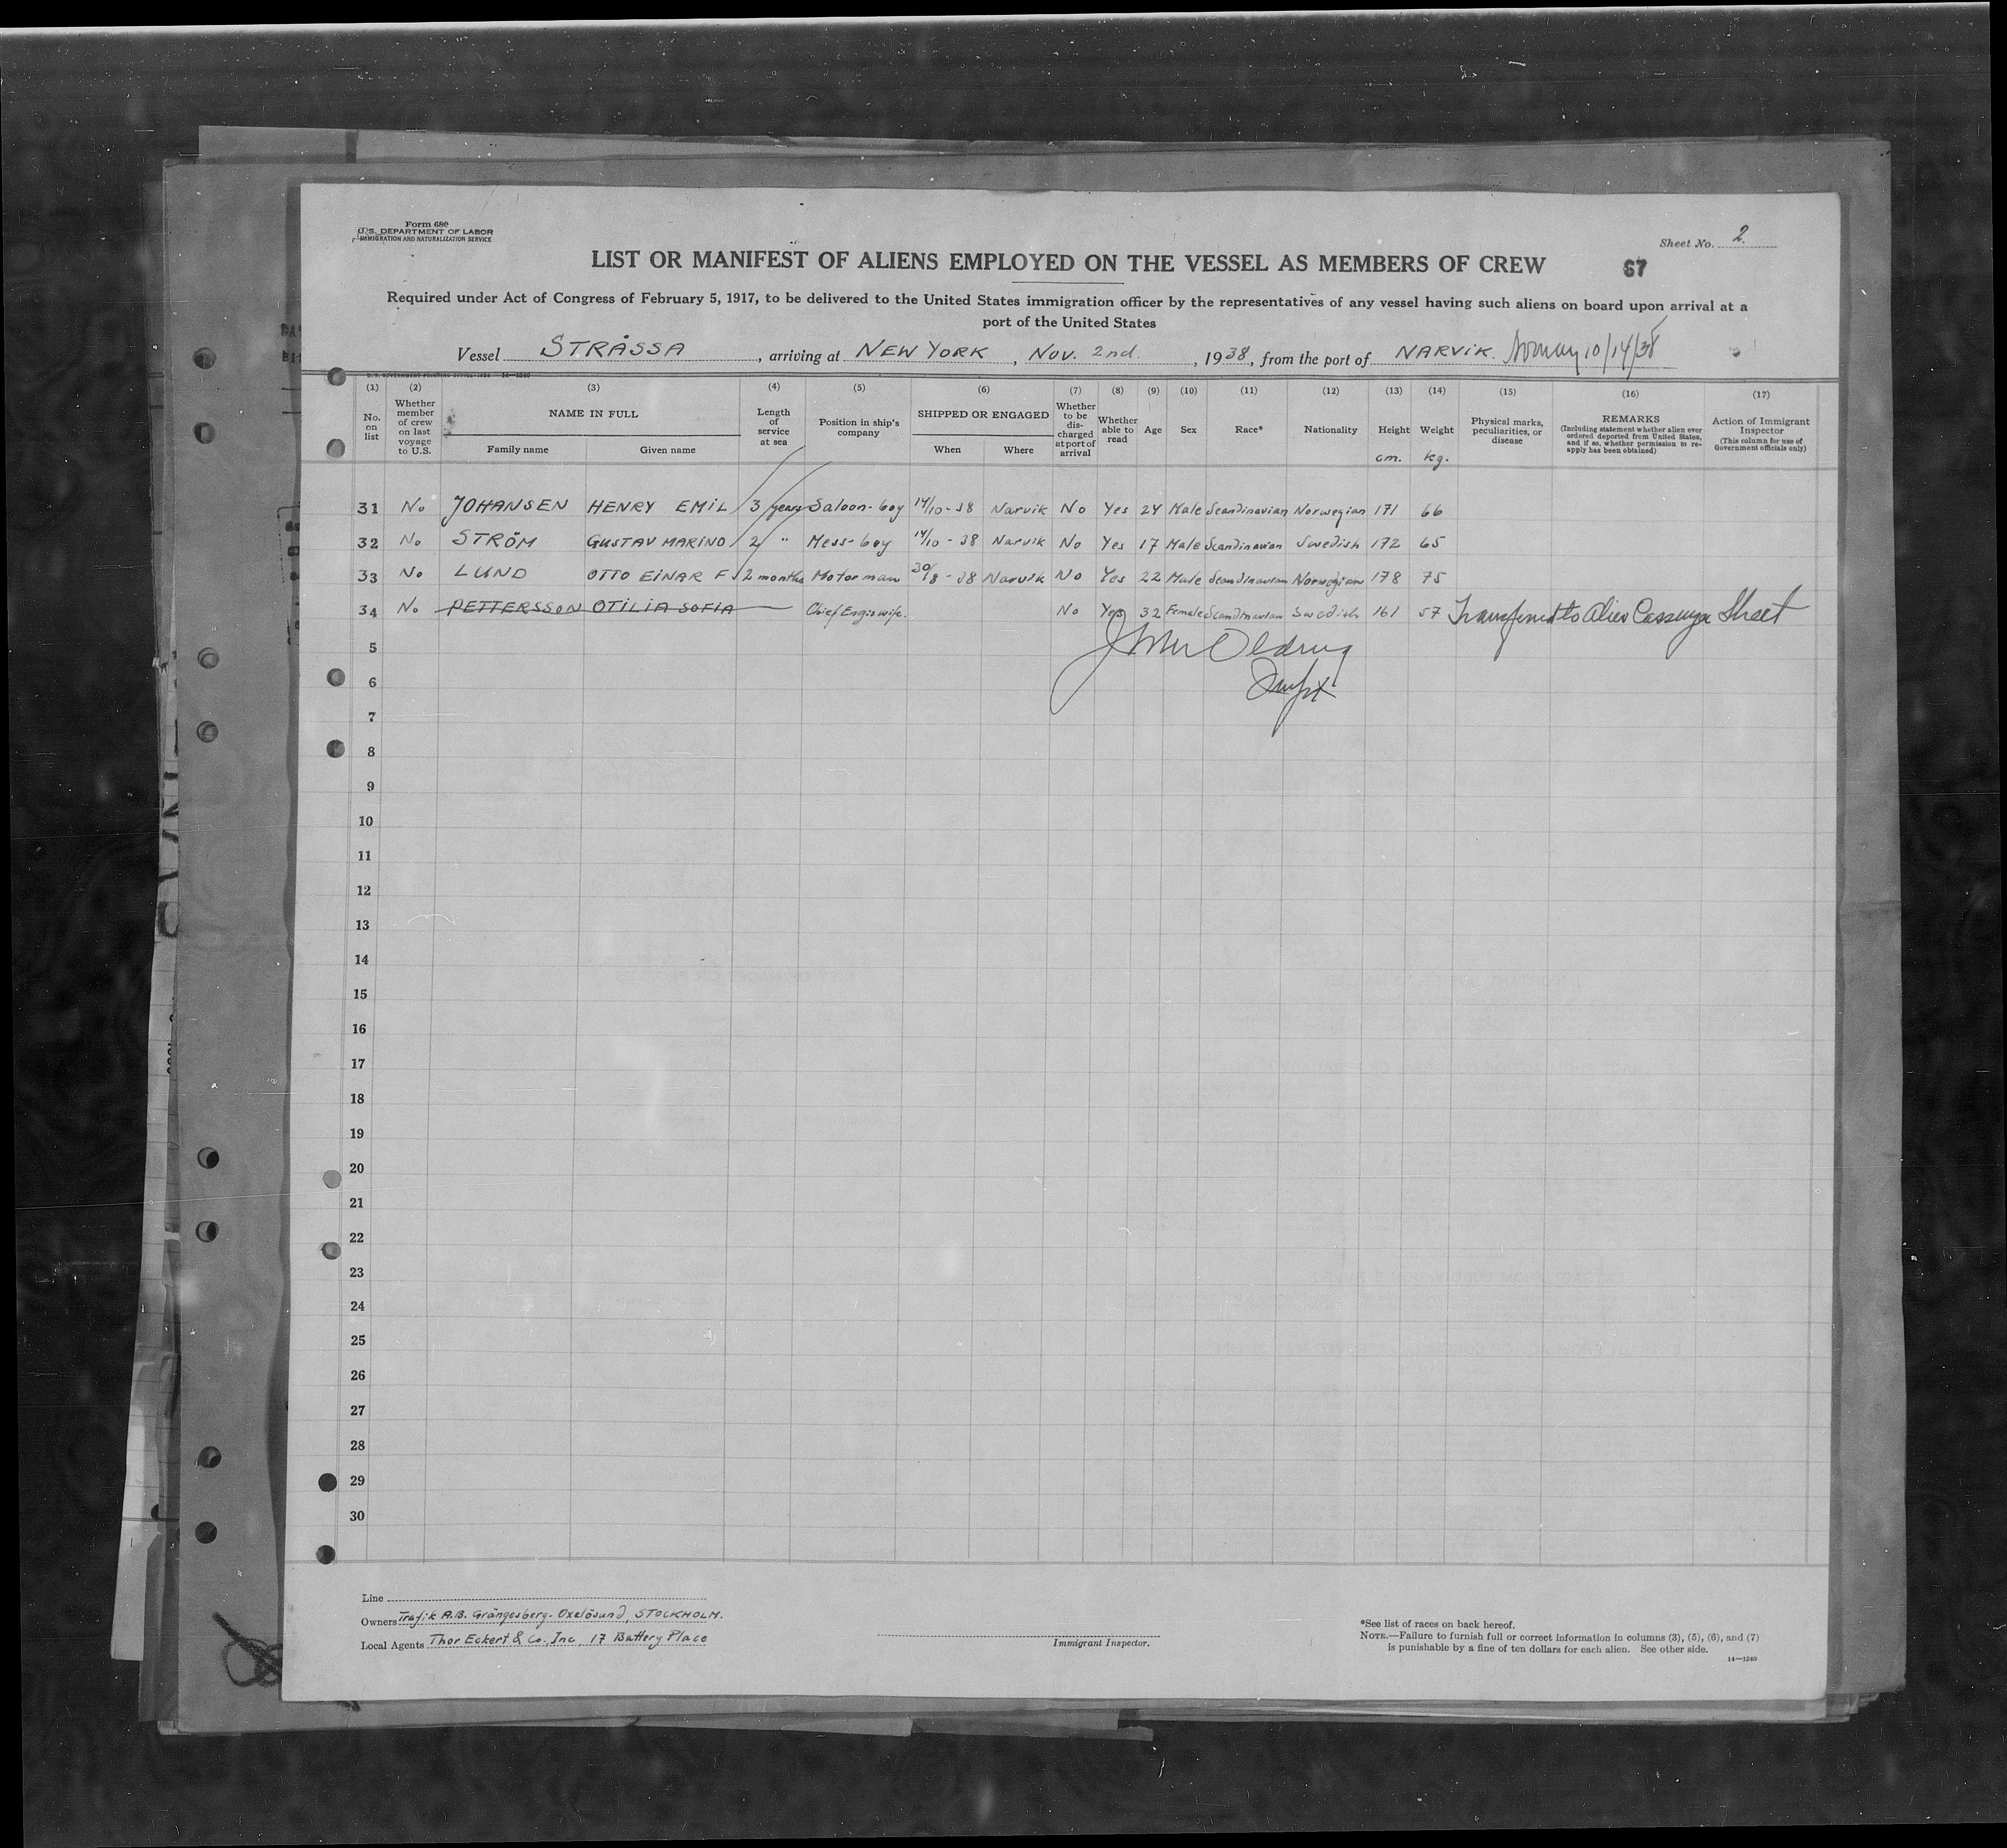 Form 680
U.S. DEPARTMENT OF LABOR
IMMIGRATION AND NATURALIZATION SERVICE
Sheet No. 2.
LIST OR MANIFEST OF ALIENS EMPLOYED ON THE VESSEL AS MEMBERS OF CREW
67
Required under Act of Congress of February 5, 1917, to be delivered to the United States immigration officer by the representatives of any vessel having such aliens on board upon arrival at a
port of the United States
Vessel STRÅSSA, arriving at NEW YORK, Nov. 2nd., 1938, from the port of NARVIK. Norway 10/14/38
(1) (2) (3) (4) (5) (6) (7) (8) (9) (10) (11) (12) (13) (14) (15) (16) (17)
No. on list
Whether member of crew on last voyage to U.S.
NAME IN FULL
Family name Given name
Length of service at sea
Position in ship's company
SHIPPED OR ENGAGED
When Where
Whether to be discharged at port of arrival
Whether able to read
Age
Sex
Race*
Nationality
Height cm.
Weight kg.
Physical marks, peculiarities, or disease
REMARKS
(Including statement whether alien ever ordered deported from United States, and if so, whether permission to reapply has been obtained)
Action of Immigrant Inspector
(This column for use of Government officials only)
31 No JOHANSEN HENRY EMIL 3 years Saloon-boy 14/10-38 Narvik No Yes 24 Male Scandinavian Norwegian 171 66
32 No STRÖM GUSTAV MARINO 2 " Mess-boy 14/10-38 Narvik No Yes 17 Male Scandinavian Swedish 172 65
33 No LUND OTTO EINAR F 2 months Motorman 30/8-38 Narvik No Yes 22 Male Scandinavian Norwegian 178 75
34 No PETTERSSON OTILIA SOFIA Chief Eng:s wife. No Yes 32 Female Scandinavian Swedish 161 57 Transferred to Alien Passenger Sheet
5
6
7
8
9
10
11
12
13
14
15
16
17
18
19
20
21
22
23
24
25
26
27
28
29
30
Line
Owners Trafik A.B. Grängesberg-Oxelösund, STOCKHOLM.
Local Agents Thor Eckert & Co., Inc, 17 Battery Place
Immigrant Inspector.
*See list of races on back hereof.
NOTE.—Failure to furnish full or correct information in columns (3), (5), (6), and (7)
is punishable by a fine of ten dollars for each alien. See other side.
14—1240